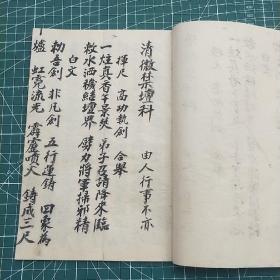 清微禁壇科 由人行事不亦
揮尺 高功執劍 合舉
一炷真香午景焚 弟子召請降來臨
救水洒穢結壇界 劈力將軍掃邪精
白文
勅吾劍 非凡劍 五行運鋳 四象為
爐 虹霓流光 霹靂噴火 鋳成三尺